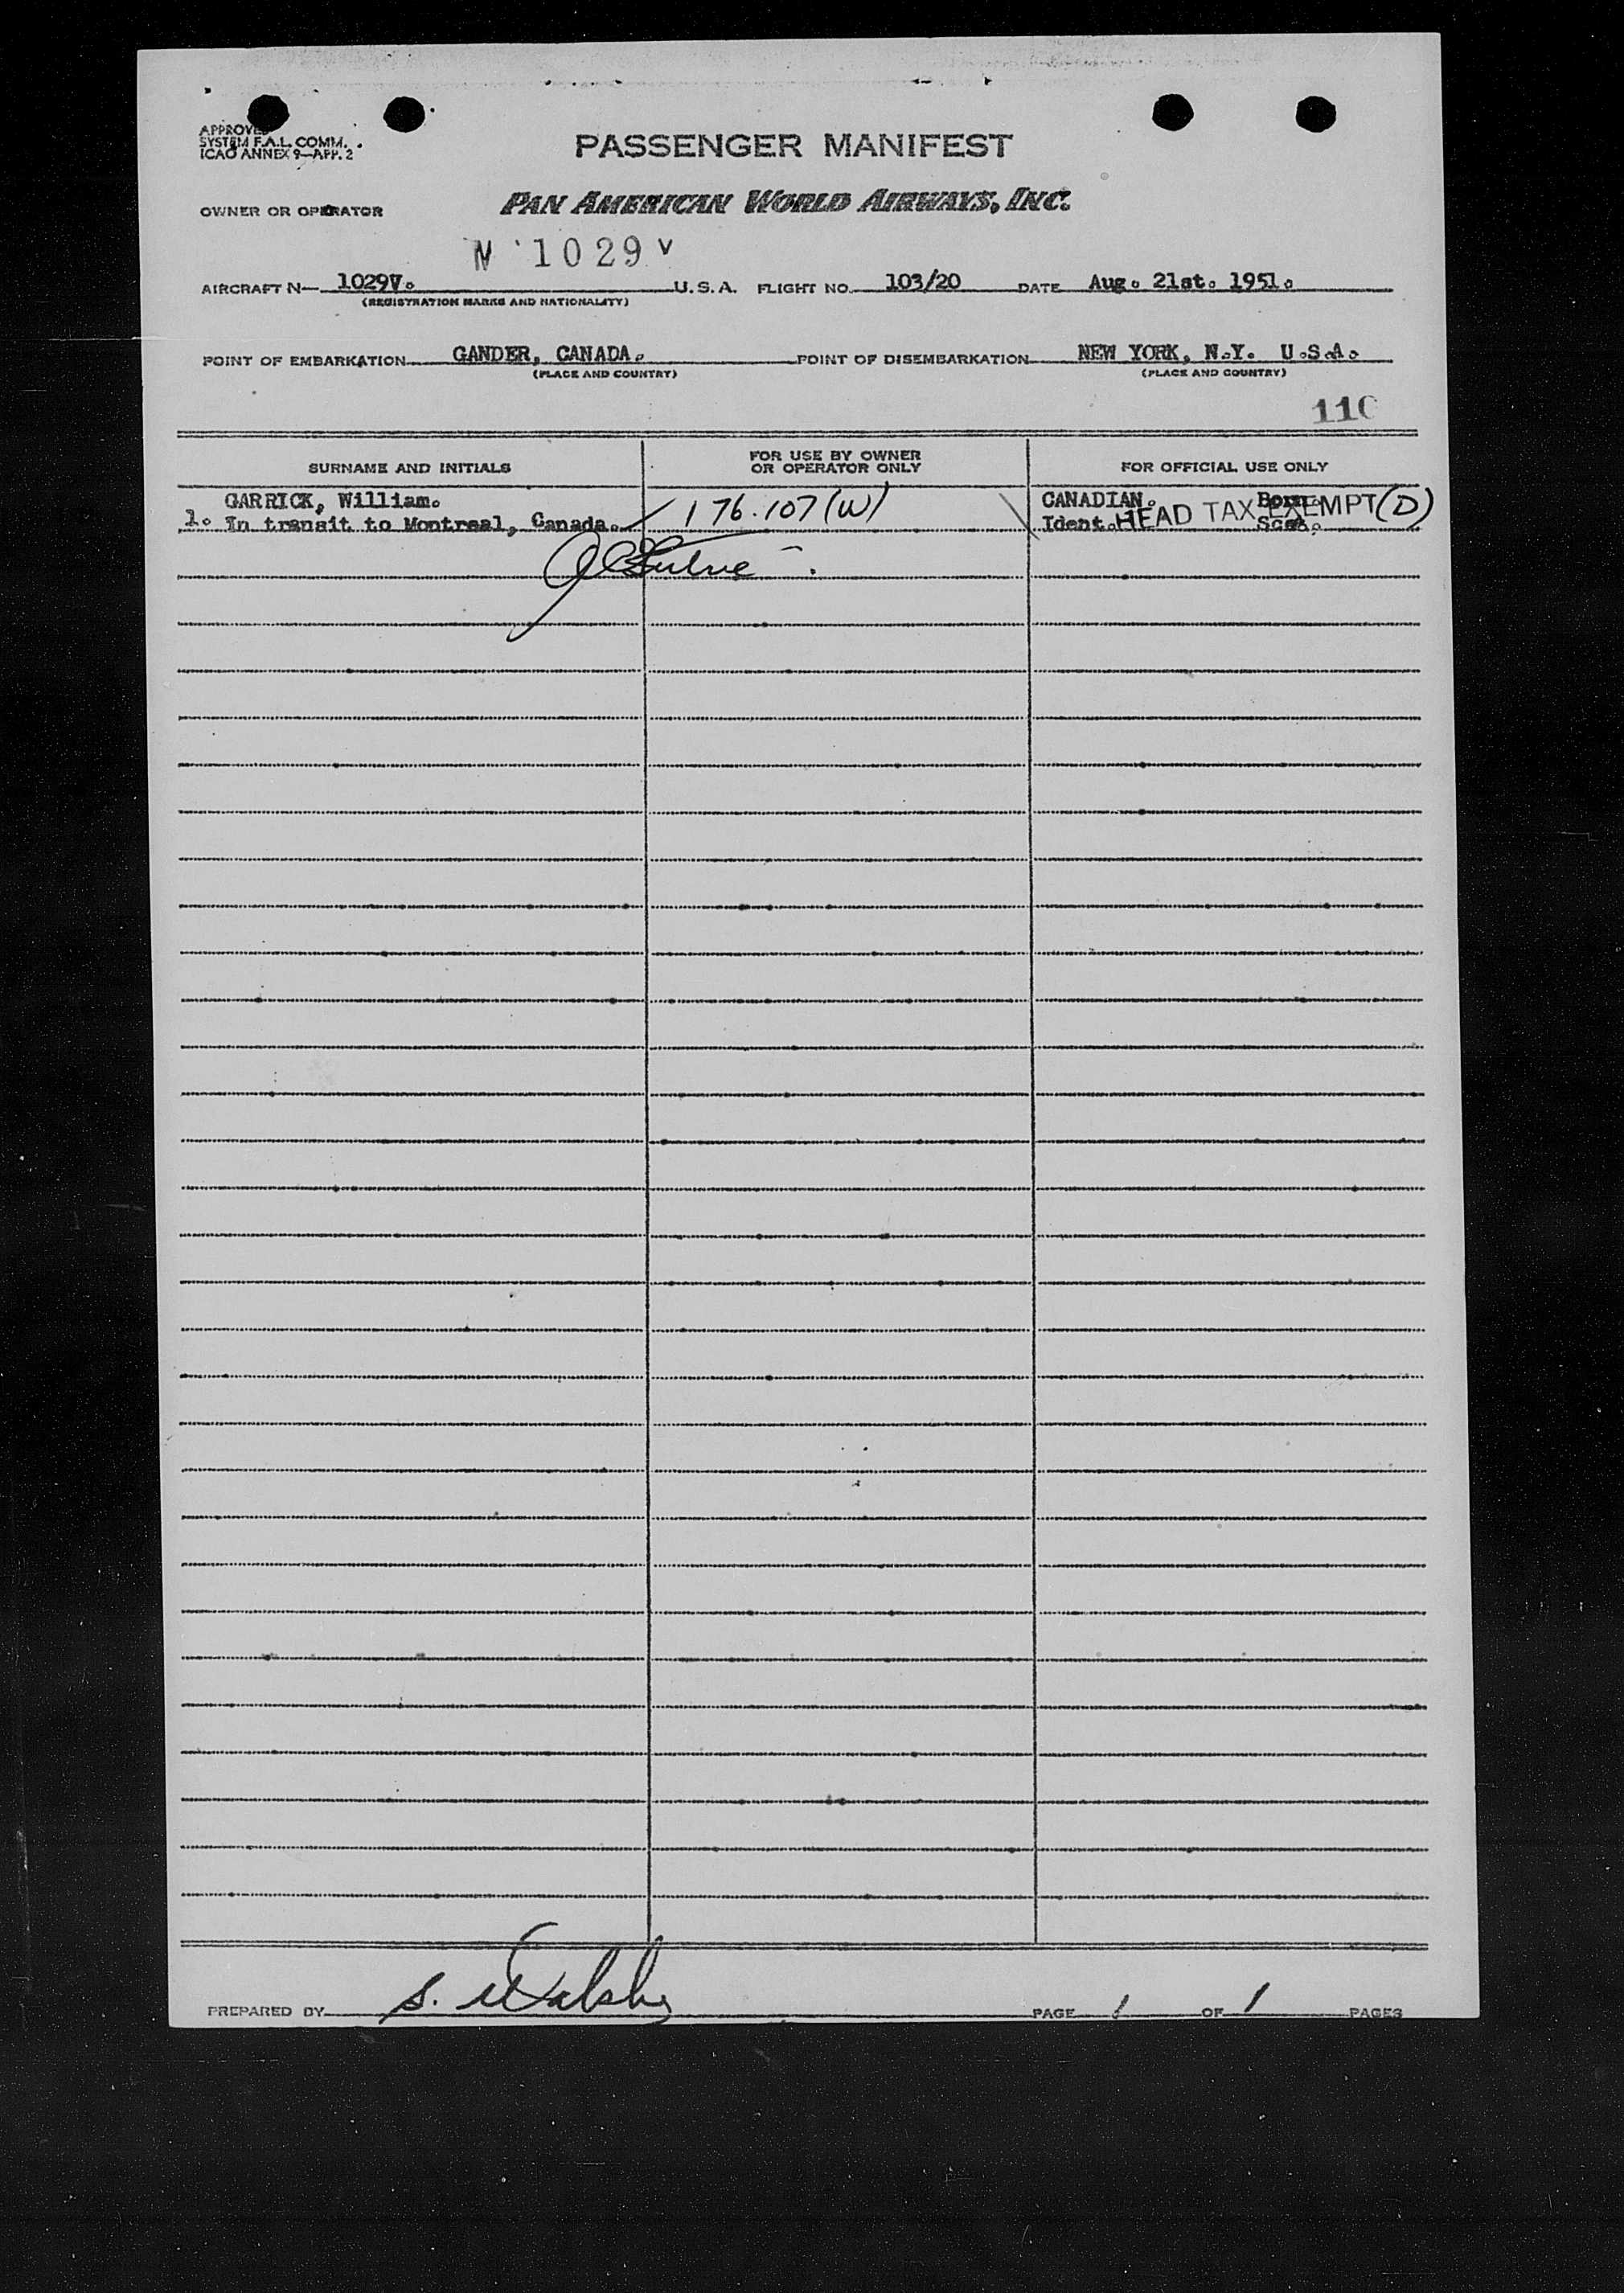 APPROVED
SYSTEM F.A.L. COMM.
ICAO ANNEX 9—APP. 2
PASSENGER MANIFEST
OWNER OR OPERATOR PAN AMERICAN WORLD AIRWAYS, INC.
N 1029 V
AIRCRAFT N— 1029V. U.S.A. FLIGHT NO. 103/20 DATE Aug. 21st. 1951.
(REGISTRATION MARKS AND NATIONALITY)
POINT OF EMBARKATION GANDER, CANADA. POINT OF DISEMBARKATION NEW YORK, N.Y. U.S.A.
(PLACE AND COUNTRY) (PLACE AND COUNTRY)
110
SURNAME AND INITIALS FOR USE BY OWNER OR OPERATOR ONLY FOR OFFICIAL USE ONLY
GARRICK, William. CANADIAN. Born.
1. In transit to Montreal, Canada. 176.107(W) Ident. HEAD TAX EXEMPT (D)
PREPARED BY S. Walsh PAGE 1 OF 1 PAGES